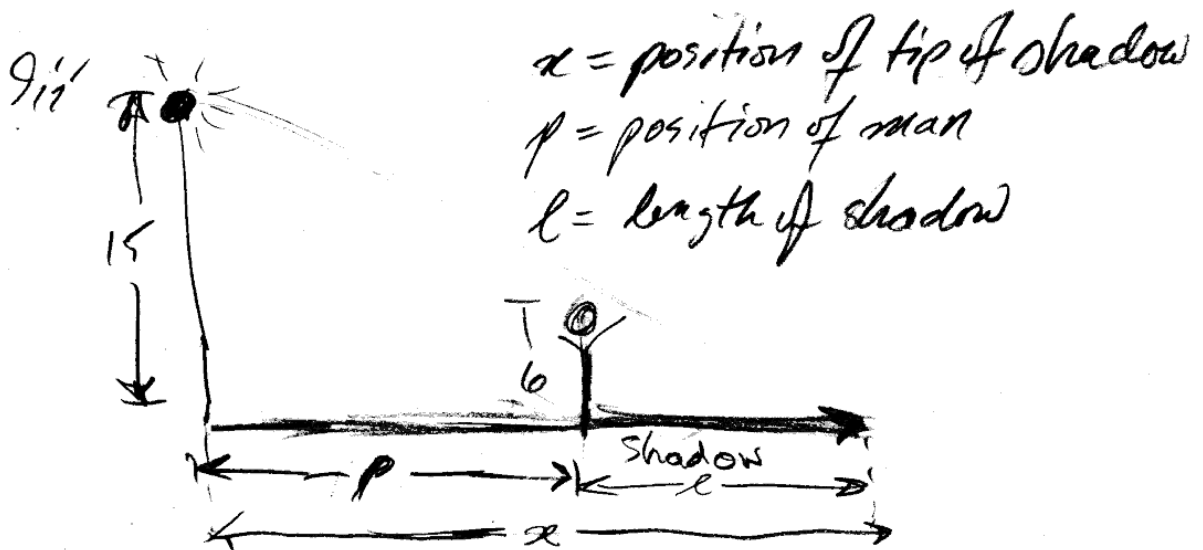 x = position of tip of shadow
p = position of man
l = length of shadow
15
6
shadow
p
l
x